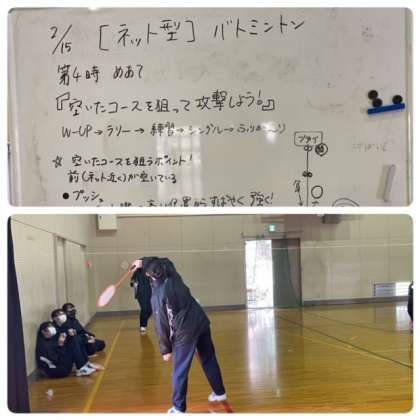 2/15 [ネット型] バトミントン
第4時 めあて
『空いたコースを狙って攻撃しよう!』
W-UP→ラリー→練習→シングル→ふりかえり
☆ 空いたコースを狙うポイント!
前(ネット近く)が空いている
●プッシュ
高い位置からすばやく強く!